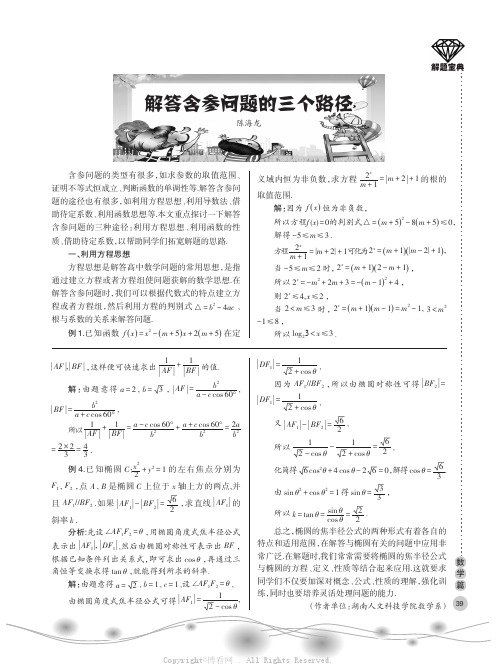 解题宝典
解答含参问题的三个路径
陈海龙
含参问题的类型有很多,如求参数的取值范围、
证明不等式恒成立、判断函数的单调性等.解答含参问
题的途径也有很多,如利用方程思想、利用导数法、借
助待定系数、利用函数思想等.本文重点探讨一下解答
含参问题的三种途径:利用方程思想、利用函数的性
质、借助待定系数,以帮助同学们拓宽解题的思路.
一、利用方程思想
方程思想是解答高中数学问题的常用思想,是指
通过建立方程或者方程组使问题获解的数学思想.在
解答含参问题时,我们可以根据代数式的特点建立方
程或者方程组,然后利用方程的判别式 △=b²-4ac、
根与系数的关系来解答问题.
例1.已知函数 f(x)=x²-(m+5)x+2(m+5) 在定
义域内恒为非负数,求方程 2ˣ/(m+1)=|m+2|+1 的根的
取值范围.
解:因为 f(x) 恒为非负数,
所以方程f(x)=0的判别式△=(m+5)²-8(m+5)≤0,
解得 -5≤m≤3.
方程 2ˣ/(m+1)=|m+2|+1可化为2ˣ=(m+1)(|m-2|+1),
当 -5≤m≤2 时, 2ˣ=(m+1)(2-m+1),
所以 2ˣ=-m²+2m+3=-(m-1)²+4,
则 2ˣ≤4,x≤2,
当 2<m≤3 时, 2ˣ=(m+1)(m-1)=m²-1, 3<m²
-1≤8,
所以 log₂3<x≤3.
|AF|,|BF|,这样便可快速求出 1/|AF|+1/|BF| 的值.
解:由题意得 a=2, b=√3, |AF|=b²/(a-c cos60°),
|BF|=b²/(a+c cos60°),
所以 1/|AF|+1/|BF|=(a-c cos60°)/b²+(a+c cos60°)/b²=2a/b²
=2×2/3=4/3.
例4.已知椭圆 C:x²/2+y²=1 的左右焦点分别为
F₁,F₂,点 A,B 是椭圆 C 上位于 x 轴上方的两点,并
且 AF₁//BF₂.如果 |AF₁|-|BF₂|=√6/2,求直线 |AF₁| 的
斜率k.
分析:先设 ∠AF₁F₂=θ,用椭圆角度式焦半径公式
表示出 |AF₁|,|DF₁|,然后由椭圆对称性可表示出 BF,
根据已知条件列出关系式,即可求出 cosθ,再通过三
角恒等变换求得 tanθ,就能得到所求的斜率.
解:由题意得 a=√2, b=1, c=1.设 ∠AF₁F₂=θ.
由椭圆角度式焦半径公式可得 |AF₁|=1/(√2-cosθ),
|DF₁|=1/(√2+cosθ),
因为 AF₁//BF₂,所以由椭圆对称性可得 |BF₂|=
|DF₁|=1/(√2+cosθ),
又 |AF₁|-|BF₂|=√6/2,
所以 1/(√2-cosθ)-1/(√2+cosθ)=√6/2,
化简得 √6cos²θ+4cosθ-2√6=0,解得 cosθ=√6/3
由 sin²θ+cos²θ=1得 sinθ=√3/3,
所以 k=tanθ=sinθ/cosθ=√2/2.
总之,椭圆的焦半径公式的两种形式有着各自的
特点和适用范围,在解答与椭圆有关的问题中应用非
常广泛.在解题时,我们常常需要将椭圆的焦半径公式
与椭圆的方程、定义、性质等结合起来应用.这就要求
同学们不仅要加深对概念、公式、性质的理解,强化训
练,同时也要培养灵活处理问题的能力.
(作者单位:湖南人文科技学院数学系)
数学篇
39
Copyright©博看网 . All Rights Reserved.